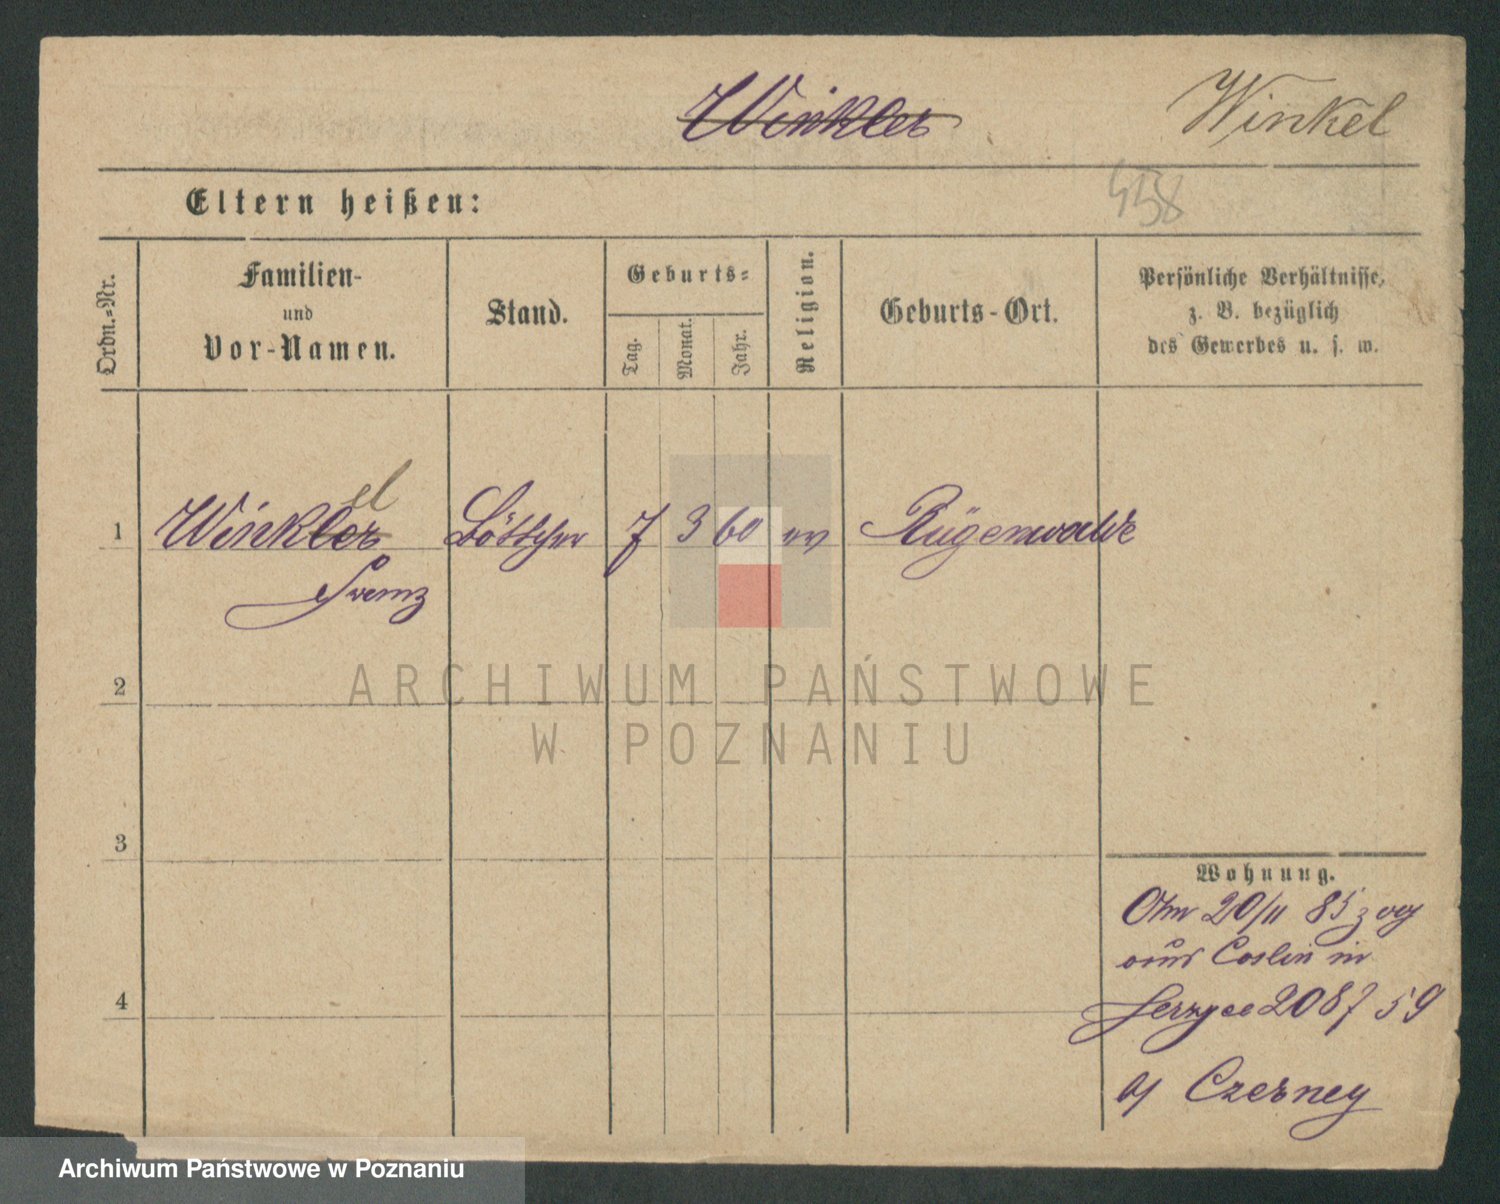 Winkler Winkel
Eltern heißen: 458
Ordn.=Nr.
Familien-
und
Vor-Namen.
Stand.
Geburts=
Tag.
Monat.
Jahr.
Religion.
Geburts-Ort.
Persönliche Verhältnisse,
z. B. bezüglich
des Gewerbes u. s. w.
el
1 Winkler Böttcher 7 3 60 ev Rügenwalde
Franz
2
ARCHIWUM PAŃSTWOWE
W POZNANIU
3
Wohnung.
Am 20/11 85 zog
aus Coslin in
4
59
Czerney
Archiwum Państwowe w Poznaniu